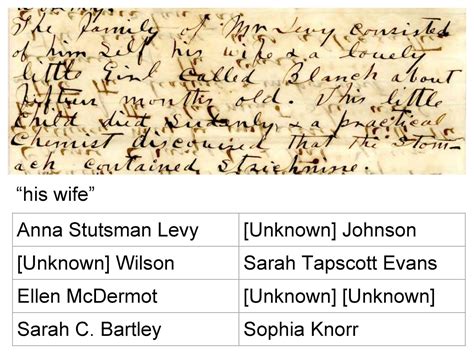 The family of Mr Levy consisted
of him self his wife & a lovely
little Girl called Blanch about
fifteen months old. This little
child died sudenly & a practical
Chemist discovered that the Stom-
ach contained Strichnine.
“his wife”
Anna Stutsman Levy
[Unknown] Johnson
[Unknown] Wilson
Sarah Tapscott Evans
Ellen McDermot
[Unknown] [Unknown]
Sarah C. Bartley
Sophia Knorr